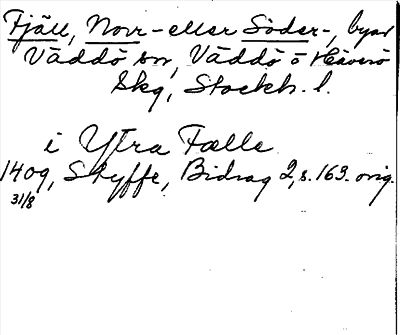 Fjäll, Norr- eller Söder-, byar
Väddö sn, Väddö o Häverö
Skg, Stockh. l.
i Ytra Fælle
1409, Styffe, Bidrag 2, s. 163. orig.
31/8